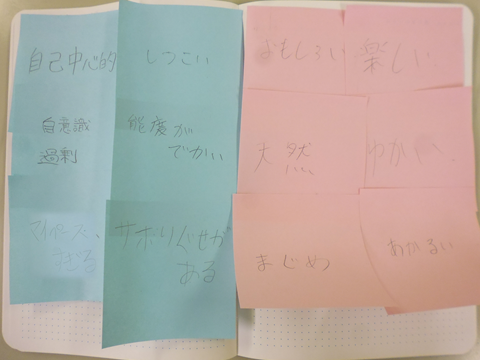 自己中心的
しつこい
おもしろい
楽しい
自意識
過剰
能度が
でかい
天然
ゆかい、
マイペース、
すぎる
サボりぐせが
ある
まじめ
あかるい